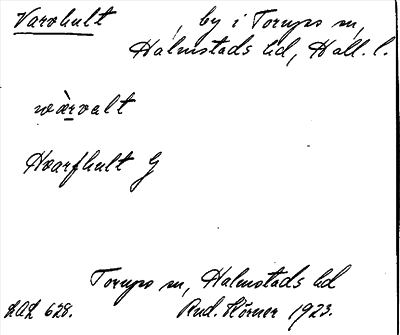 Varvhult, by i Torups sn,
Halmstads hd, Hall. l.
wàrvalt
Hvarfhult G
Torups sn, Halmstads hd
LAL 628. Rud. Hörner 1923.